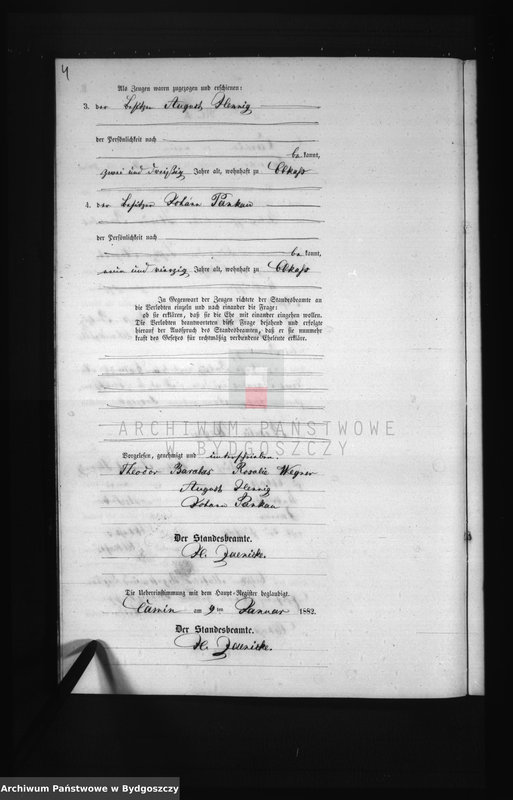 4
Als Zeugen waren zugezogen und erschienen:
3. der Besitzer August Hennig
der Persönlichkeit nach
be kannt,
zwei und dreißig Jahre alt, wohnhaft zu Obkaß
4. der Besitzer Johann Pankau
der Persönlichkeit nach
be kannt,
neun und vierzig Jahre alt, wohnhaft zu Obkaß
In Gegenwart der Zeugen richtete der Standesbeamte an
die Verlobten einzeln und nach einander die Frage:
ob sie erklären, daß sie die Ehe mit einander eingehen wollen.
Die Verlobten beantworteten diese Frage bejahend und erfolgte
hierauf der Ausspruch des Standesbeamten, daß er sie nunmehr
kraft des Gesetzes für rechtmäßig verbundene Eheleute erkläre.
ARCHIWUM PAŃSTWOWE
W BYDGOSZCZY
Vorgelesen, genehmigt und unterschrieben.
Theodor Rosalie Wegner
August Hennig
Johann Pankau
Der Standesbeamte.
Die Uebereinstimmung mit dem Haupt-Register beglaubigt.
Camin am 9 ten Januar 1882.
Der Standesbeamte.
Archiwum Państwowe w Bydgoszczy